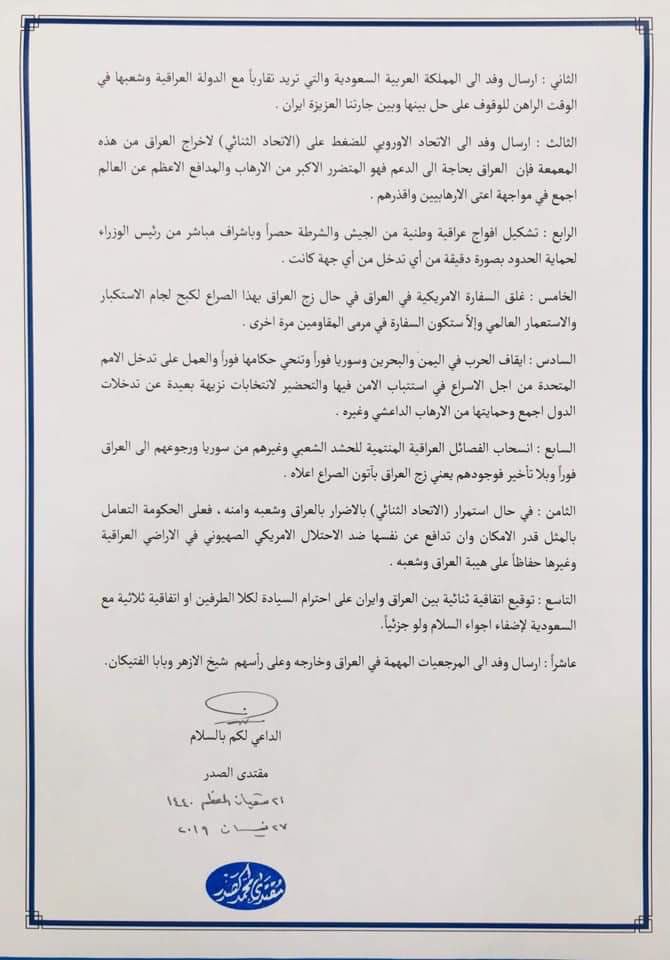 الثاني : ارسال وفد الى المملكة العربية السعودية والتي تريد تقارباً مع الدولة العراقية وشعبها في
الوقت الراهن للوقوف على حل بينها وبين جارتنا العزيزة ايران .
الثالث : ارسال وفد الى الاتحاد الاوروبي للضغط على (الاتحاد الثنائي) لاخراج العراق من هذه
المعمعة فإن العراق بحاجة الى الدعم فهو المتضرر الاكبر من الارهاب والمدافع الاعظم عن العالم
اجمع في مواجهة اعتى الارهابيين واقذرهم .
الرابع : تشكيل افواج عراقية وطنية من الجيش والشرطة حصراً وباشراف مباشر من رئيس الوزراء
لحماية الحدود بصورة دقيقة من أي تدخل من أي جهة كانت .
الخامس : غلق السفارة الامريكية في العراق في حال زج العراق بهذا الصراع لكبح لجام الاستكبار
والاستعمار العالمي وإلاّ ستكون السفارة في مرمى المقاومين مرة اخرى .
السادس : ايقاف الحرب في اليمن والبحرين وسوريا فوراً وتنحي حكامها فوراً والعمل على تدخل الامم
المتحدة من اجل الاسراع في استتباب الامن فيها والتحضير لانتخابات نزيهة بعيدة عن تدخلات
الدول اجمع وحمايتها من الارهاب الداعشي وغيره .
السابع : انسحاب الفصائل العراقية المنتمية للحشد الشعبي وغيرهم من سوريا ورجوعهم الى العراق
فوراً وبلا تأخير فوجودهم يعني زج العراق بآتون الصراع اعلاه .
الثامن : في حال استمرار (الاتحاد الثنائي) بالاضرار بالعراق وشعبه وامنه ، فعلى الحكومة التعامل
بالمثل قدر الامكان وان تدافع عن نفسها ضد الاحتلال الامريكي الصهيوني في الاراضي العراقية
وغيرها حفاظاً على هيبة العراق وشعبه .
التاسع : توقيع اتفاقية ثنائية بين العراق وايران على احترام السيادة لكلا الطرفين او اتفاقية ثلاثية مع
السعودية لإضفاء اجواء السلام ولو جزئياً.
عاشراً : ارسال وفد الى المرجعيات المهمة في العراق وخارجه وعلى رأسهم شيخ الازهر وبابا الفتيكان.
الداعي لكم بالسلام
مقتدى الصدر
٢١ شعبان المعظم ١٤٤٠
٢٧ نيسان ٢٠١٩